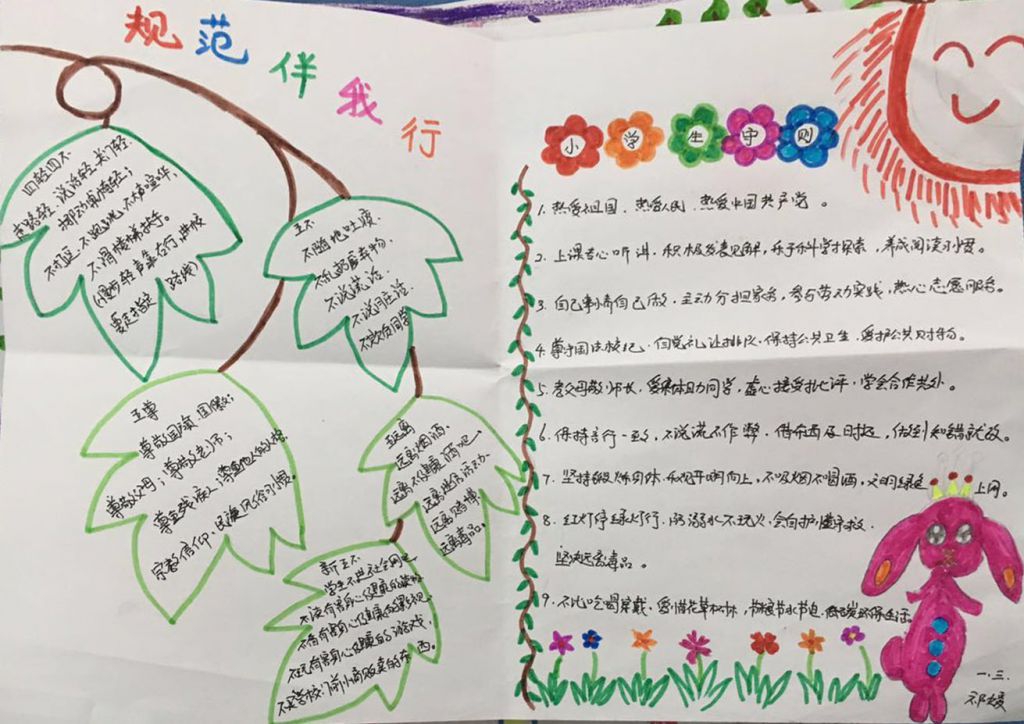 规范伴我行
四轻四不
走路轻、说话轻、关门轻、
挪动桌椅轻；
不打逗、不跑跳、不大声喧华、
不滑楼梯扶手。
(慢步轻声靠右行，进校
要走指定路线)
五不
不随地吐痰
不乱扔废弃物、
不说谎话、
不说脏话、
不欺负同学
五尊
尊敬国旗、国徽；
尊敬父母；尊敬老师；
尊重残疾人；尊重他人的人格、
宗教信仰、民族风俗习惯。
五远离
远离烟酒、
远离不健康酒吧、
远离迷信活动、
远离赌博、
远离毒品。
新五不
学生不进社会网吧
不读有害身心健康的读物
不看有害身心健康的影视、
不玩有害身心健康的游戏、
不买学校门前小商贩卖的东西。
小学生守则
1. 热爱祖国、热爱人民、热爱中国共产党。
2. 上课专心听讲，积极发表见解，乐于科学探索，养成阅读习惯。
3. 自己事情自己做，主动分担家务，参与劳动实践，热心志愿服务。
4. 尊守国法校纪，自觉礼让排队，保持公共卫生，爱护公共财物。
5. 孝父母敬师长，爱集体助同学，虚心接受批评，学会合作共处。
6. 保持言行一致，不说谎不作弊，借东西及时还，做到知错就改。
7. 坚持锻炼身体，乐观开朗向上，不吸烟不喝酒，文明绿色上网。
8. 红灯停绿灯行，防溺水不玩火，会自护懂求救，
坚决远离毒品。
9. 不比吃喝穿戴，爱惜花草树木，节粮节水节电，低碳环保生活。
一.三.
祁媛